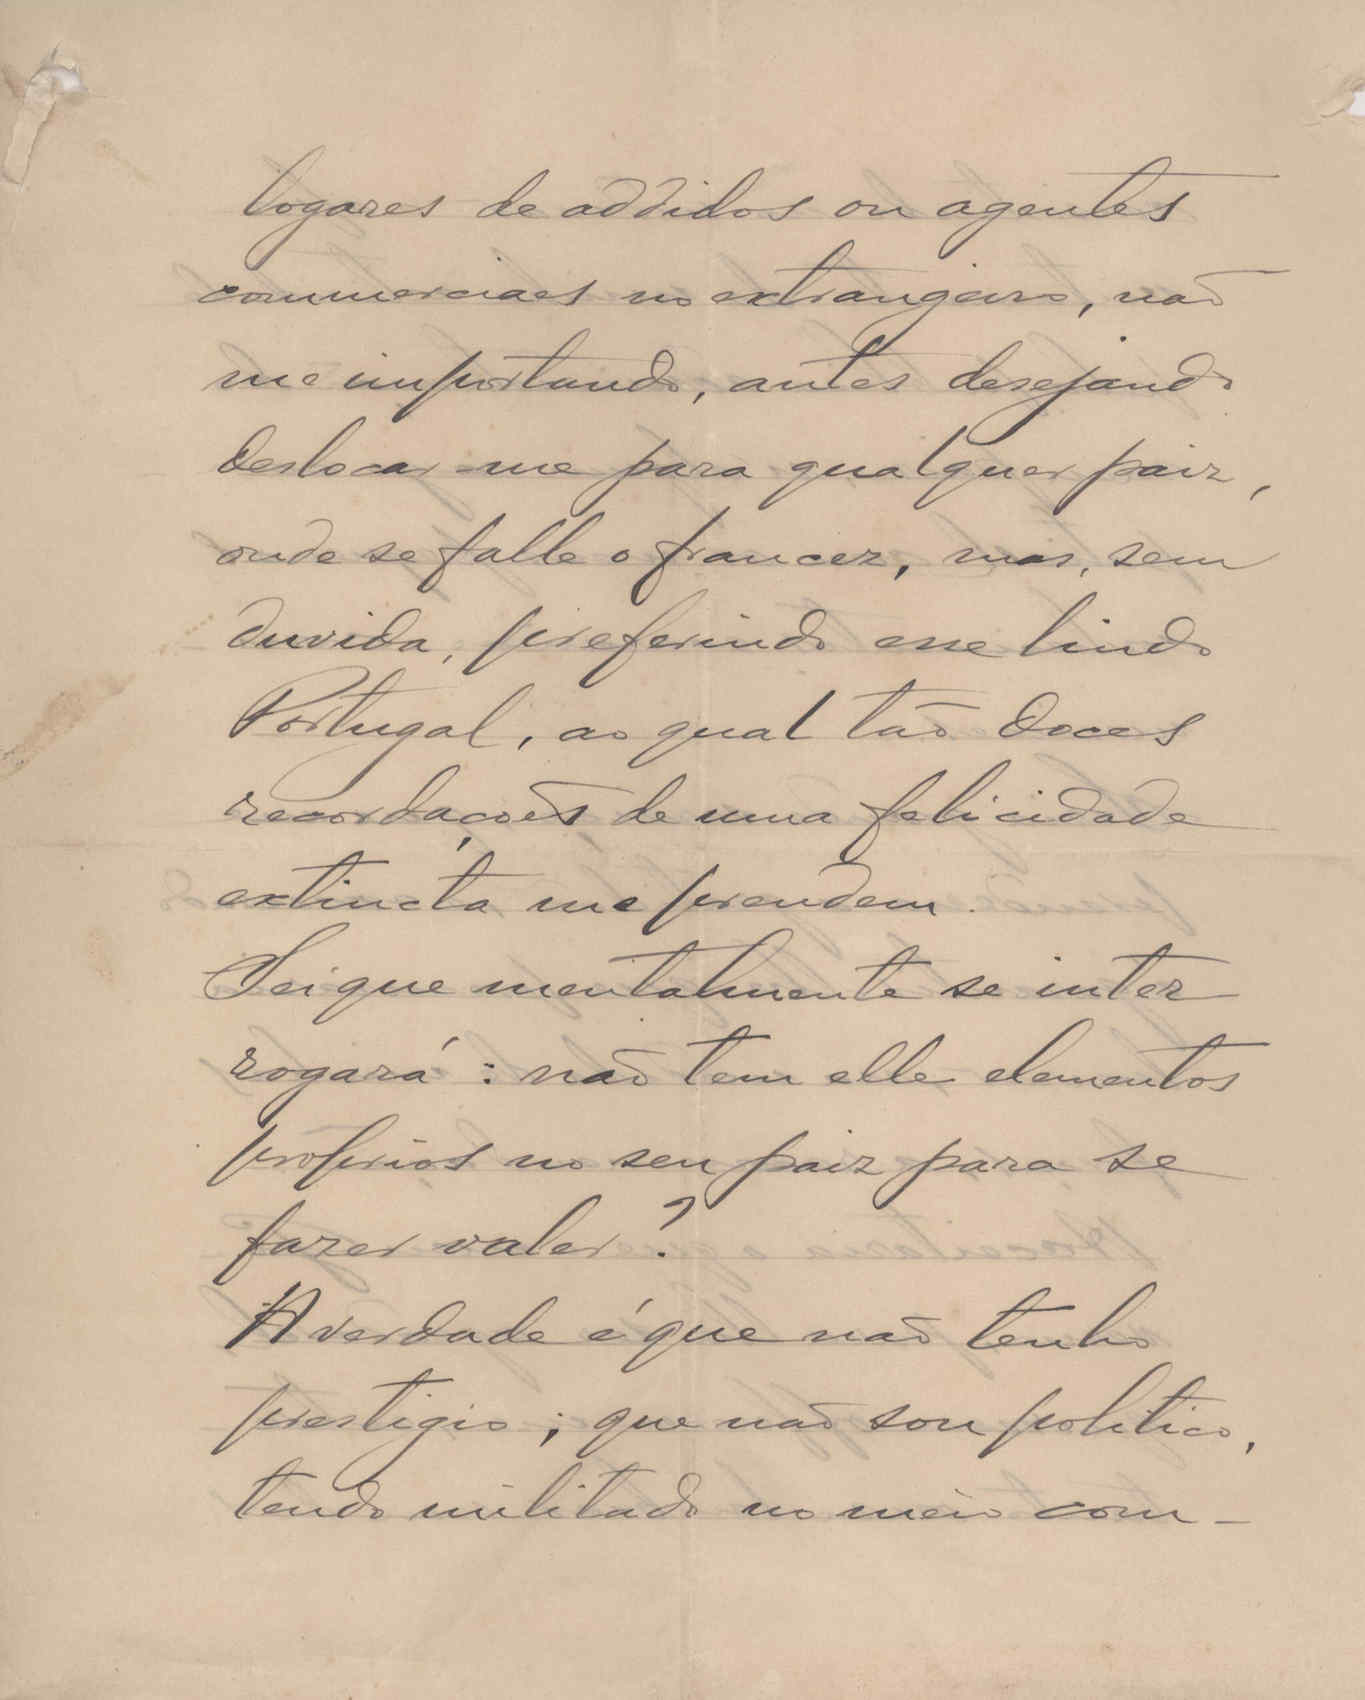 logares de addidos ou agentes
commerciaes no extrangeiro, não
me importando, antes desejando
deslocar-me para qualquer paiz,
onde se falle o francez, mas, sem
duvida, preferindo esse lindo
Portugal, ao qual tão doces
recordações de uma felicidade
extincta me prendem.
Sei que mentalmente se inter
rogará: não tem elle elementos
proprios no seu paiz para se
fazer valer?
A verdade é que não tenho
prestigio; que não sou politico,
tendo militado no meio com-